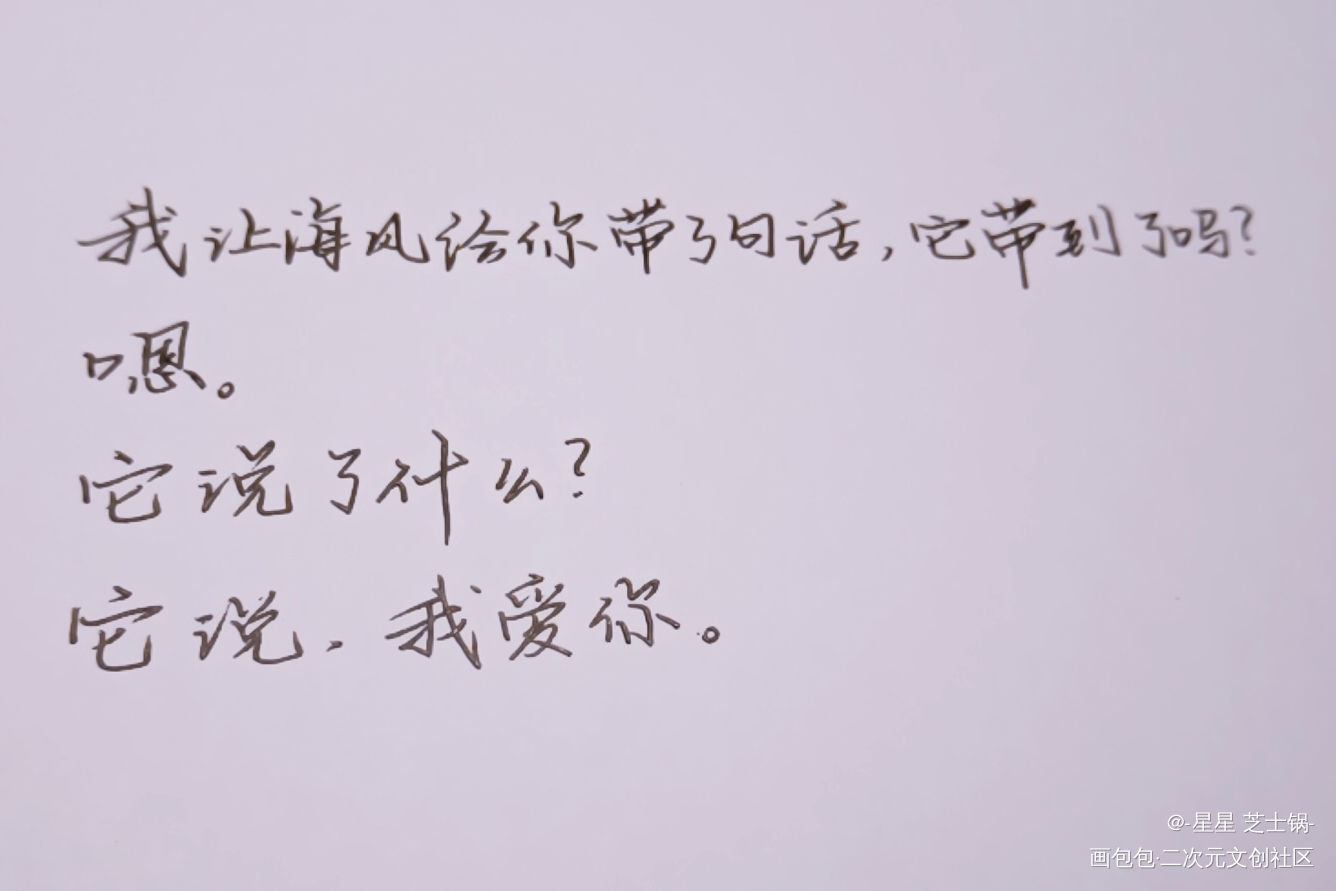 我让海风给你带了句话,它带到了吗?
嗯。
它说了什么?
它说,我爱你。
@-星星 芝士锅-
画包包·二次元文创社区